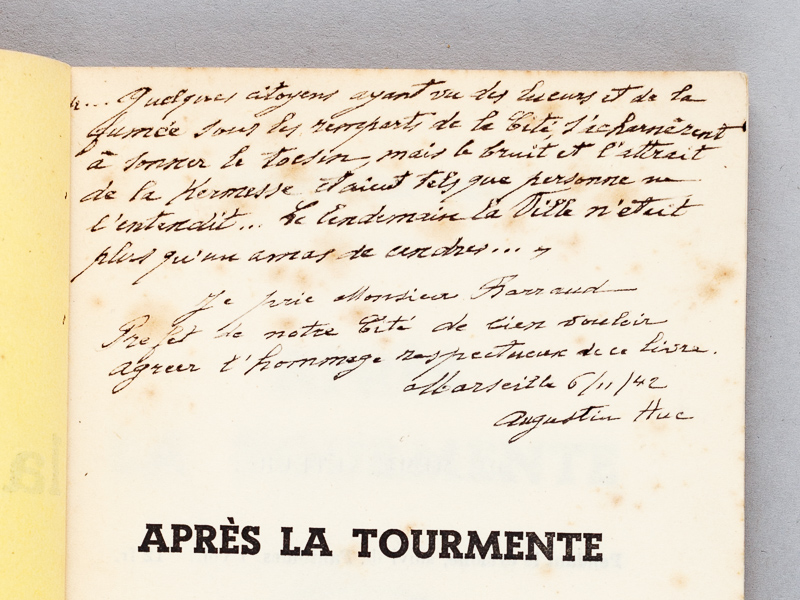 "... Quelques citoyens ayant vu des lueurs et de la
fumée sous les remparts de la Cité, s'acharnèrent
à sonner le tocsin, mais le bruit et l'attrait
de la Kermesse étaient tels que personne ne
l'entendit... Le lendemain la Ville n'était
plus qu'un amas de cendres... "
Je prie Monsieur Barraud
Préfet de notre Cité de bien vouloir
agréer l'hommage respectueux de ce livre.
Marseille 6/11/42
Augustin Huc
APRÈS LA TOURMENTE